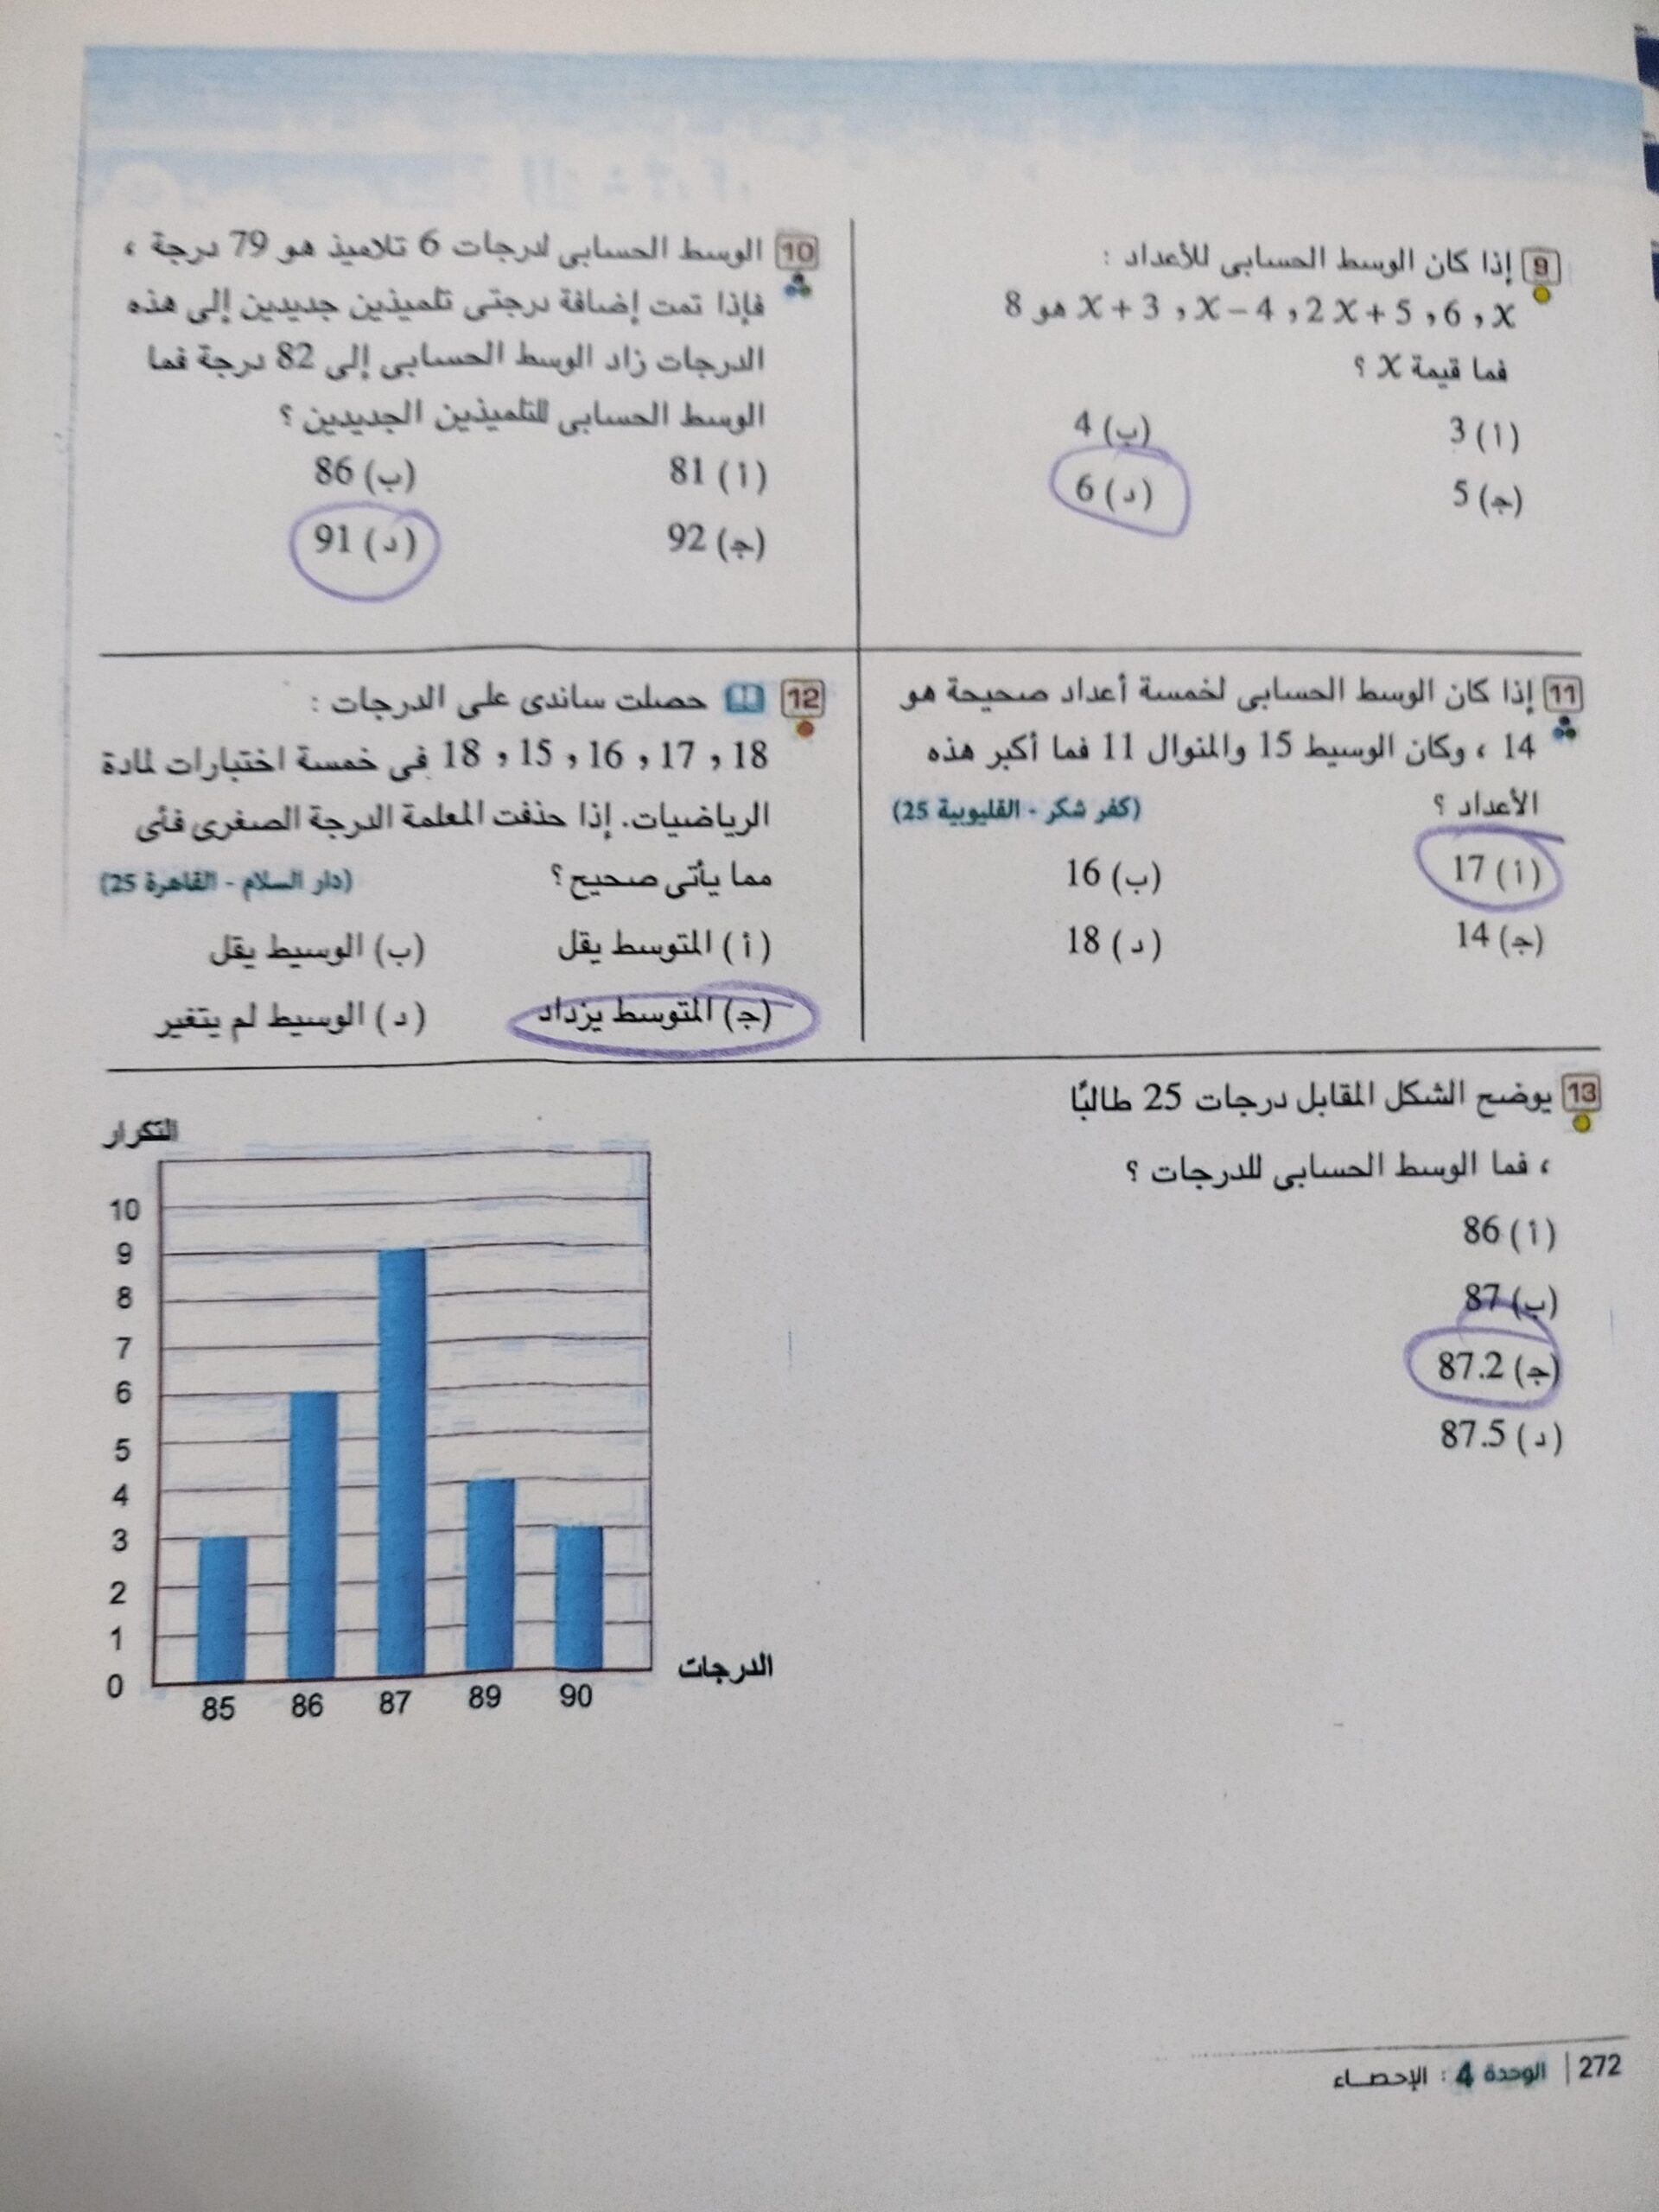 9 إذا كان الوسط الحسابى للأعداد :
x ، 6 ، 2x + 5 ، x − 4 ، x + 3 هو 8
فما قيمة x ؟
(أ) 3 (ب) 4
(جـ) 5 (د) 6
10 الوسط الحسابى لدرجات 6 تلاميذ هو 79 درجة ،
فإذا تمت إضافة درجتى تلميذين جديدين إلى هذه
الدرجات زاد الوسط الحسابى إلى 82 درجة فما
الوسط الحسابى للتلميذين الجديدين ؟
(أ) 81 (ب) 86
(جـ) 92 (د) 91
11 إذا كان الوسط الحسابى لخمسة أعداد صحيحة هو
14 ، وكان الوسيط 15 والمنوال 11 فما أكبر هذه
الأعداد ؟ (كفر شكر - القليوبية 25)
(أ) 17 (ب) 16
(جـ) 14 (د) 18
12 حصلت ساندى على الدرجات :
18 ، 17 ، 16 ، 15 ، 18 فى خمسة اختبارات لمادة
الرياضيات. إذا حذفت المعلمة الدرجة الصغرى فأى
مما يأتى صحيح ؟ (دار السلام - القاهرة 25)
(أ) المتوسط يقل (ب) الوسيط يقل
(جـ) المتوسط يزداد (د) الوسيط لم يتغير
13 يوضح الشكل المقابل درجات 25 طالبًا
، فما الوسط الحسابى للدرجات ؟
(أ) 86
(ب) 87
(جـ) 87.2
(د) 87.5
التكرار
10
9
8
7
6
5
4
3
2
1
0
85 86 87 89 90
الدرجات
272 | الوحدة 4 : الإحصـاء